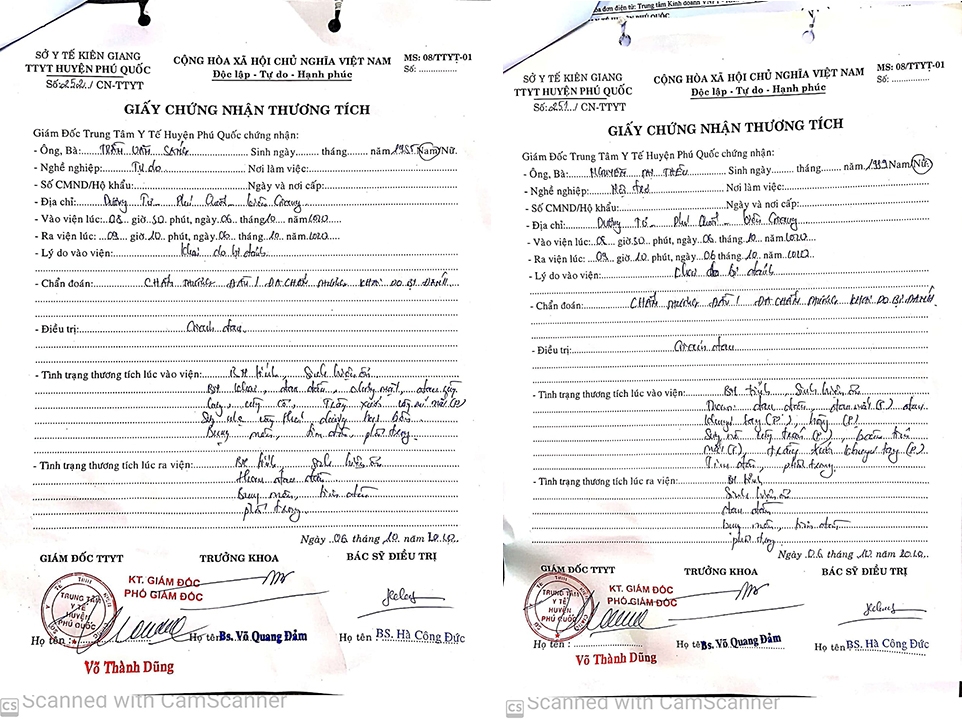 SỞ Y TẾ KIÊN GIANG
TTYT HUYỆN PHÚ QUỐC
Số:252/ CN-TTYT
CỘNG HÒA XÃ HỘI CHỦ NGHĨA VIỆT NAM
Độc lập - Tự do - Hạnh phúc
MS: 08/TTYT-01
Số: ...............
GIẤY CHỨNG NHẬN THƯƠNG TÍCH
Giám Đốc Trung Tâm Y Tế Huyện Phú Quốc chứng nhận:
- Ông, Bà: TRẦN VĂN SANG Sinh ngày....... tháng....... năm 1985 Nam/Nữ.
- Nghề nghiệp: Tự do Nơi làm việc:
- Số CMND/Hộ khẩu: Ngày và nơi cấp:
- Địa chỉ: Dương Tơ Phú Quốc Kiên Giang
- Vào viện lúc: 08 giờ 50 phút, ngày 06 tháng 10 năm 2020
- Ra viện lúc: 09 giờ 10 phút, ngày 06 tháng 10 năm 2020
- Lý do vào viện: Khai do bị đánh
- Chẩn đoán: CHẤN THƯƠNG ĐẦU / ĐA CHẤN THƯƠNG KHAI DO BỊ ĐÁNH
- Điều trị: Giảm đau
- Tình trạng thương tích lúc vào viện: BN tỉnh, Sinh hiệu ổn
BN khai, đau đầu, chóng mặt, đau
Bụng mềm, tim đều, phổi trong.
- Tình trạng thương tích lúc ra viện: BN tỉnh sinh hiệu ổn
than đau đầu
Bụng mềm, tim đều
phổi trong
Ngày 06 tháng 10 năm 2020
GIÁM ĐỐC TTYT
TRƯỞNG KHOA
BÁC SỸ ĐIỀU TRỊ
KT. GIÁM ĐỐC
PHÓ GIÁM ĐỐC
TRUNG TÂM
Y TẾ
HUYỆN
PHÚ QUỐC
Họ tên :
Họ tên Bs. Võ Quang Đảm
Họ tên BS. Hà Công Đức
Võ Thành Dũng
CS Scanned with CamScanner
đơn điện tử: Trung tâm Kinh doanh VNPT
SỞ Y TẾ KIÊN GIANG
TTYT HUYỆN PHÚ QUỐC
Số:251/ CN-TTYT
CỘNG HÒA XÃ HỘI CHỦ NGHĨA VIỆT NAM
Độc lập - Tự do - Hạnh phúc
MS: 08/TTYT-01
Số: ...............
GIẤY CHỨNG NHẬN THƯƠNG TÍCH
Giám Đốc Trung Tâm Y Tế Huyện Phú Quốc chứng nhận:
- Ông, Bà: NGUYỄN THỊ THÊU Sinh ngày....... tháng....... năm Nam/Nữ.
- Nghề nghiệp: Nội trợ Nơi làm việc:
- Số CMND/Hộ khẩu: Ngày và nơi cấp:
- Địa chỉ: Dương Tơ Phú Quốc Kiên Giang
- Vào viện lúc: 08 giờ 50 phút, ngày 06 tháng 10 năm 2020
- Ra viện lúc: 09 giờ 10 phút, ngày 06 tháng 10 năm 2020
- Lý do vào viện: Khai do bị đánh
- Chẩn đoán: CHẤN THƯƠNG ĐẦU / ĐA CHẤN THƯƠNG KHAI DO BỊ ĐÁNH
- Điều trị: Giảm đau
- Tình trạng thương tích lúc vào viện: BN tỉnh, Sinh hiệu ổn
đau đầu, đau mắt (P), đau
khuỷu tay (P), hông (P)
mắt (P), trầy xước khuỷu tay (P).
Tim đều, phổi trong.
- Tình trạng thương tích lúc ra viện: BN tỉnh
Sinh hiệu ổn
đau đầu
bụng mềm, tim đều
phổi trong
Ngày 06 tháng 10 năm 2020
GIÁM ĐỐC TTYT
TRƯỞNG KHOA
BÁC SỸ ĐIỀU TRỊ
KT. GIÁM ĐỐC
PHÓ GIÁM ĐỐC
TRUNG TÂM
Y TẾ
HUYỆN
PHÚ QUỐC
Họ tên :
Họ tên Bs. Võ Quang Đảm
Họ tên BS. Hà Công Đức
Võ Thành Dũng
CS Scanned with CamScanner